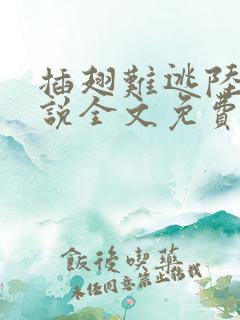 插翅難逃陸
説全文免費
飯後喫藥
未經同意禁止轉載